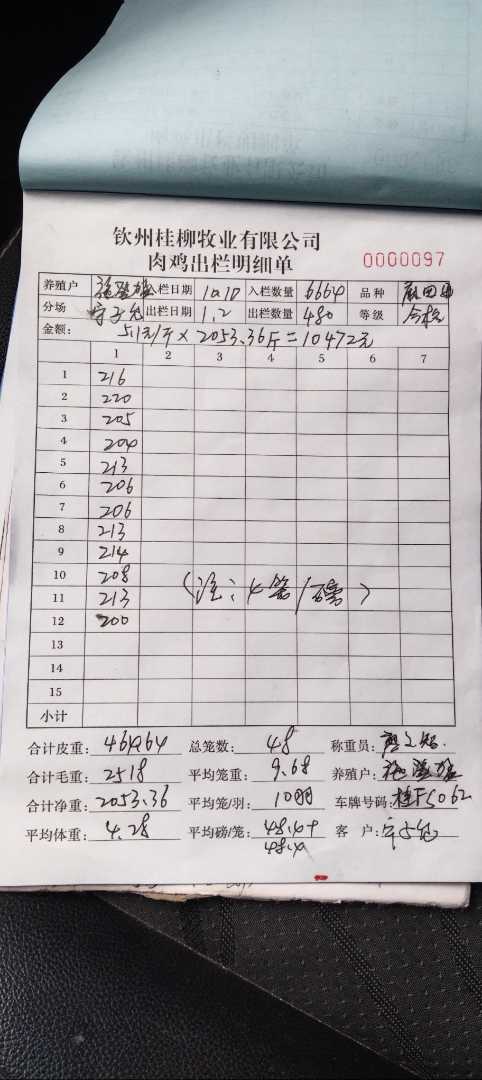 钦州桂柳牧业有限公司
肉鸡出栏明细单
0000097
养殖户 入栏日期 10.10 入栏数量 6664 品种
分场 出栏日期 1.2 出栏数量 480 等级 合格
金额: 5.1元/斤×2053.36斤=10472元
1 2 3 4 5 6 7
1 216
2 220
3 205
4 204
5 213
6 206
7 206
8 213
9 214
10 208
11 213
12 200
(注:4笼/磅)
13
14
15
小计
合计皮重: 464.64 总笼数: 48 称重员:
合计毛重: 2518 平均笼重: 9.68 养殖户:
合计净重: 2053.36 平均笼/羽: 10羽 车牌号码: 桂F5062
平均体重: 4.28 平均磅/笼: 客户: